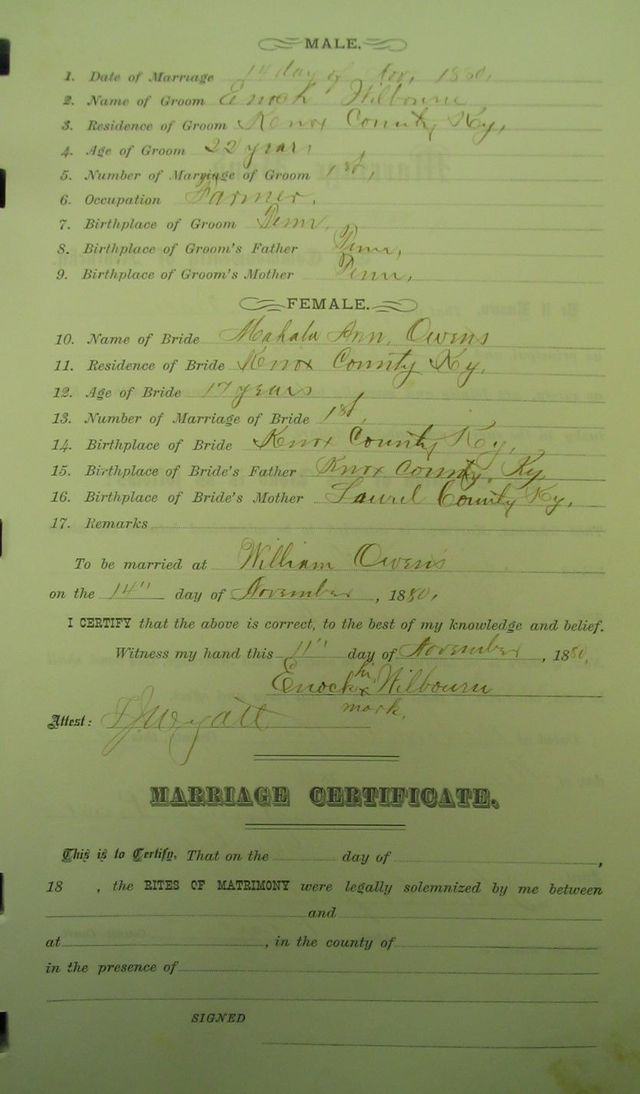 MALE.
1. Date of Marriage 14 day of Nov, 1880,
2. Name of Groom Enoch Wilbourn
3. Residence of Groom Knox County Ky,
4. Age of Groom 22 years
5. Number of Marriage of Groom 1st,
6. Occupation Farmer,
7. Birthplace of Groom Tenn,
8. Birthplace of Groom's Father Tenn,
9. Birthplace of Groom's Mother Tenn,
FEMALE.
10. Name of Bride Mahala Ann, Owens
11. Residence of Bride Knox County Ky,
12. Age of Bride 17 years
13. Number of Marriage of Bride 1st,
14. Birthplace of Bride Knox County Ky,
15. Birthplace of Bride's Father Knox County, Ky
16. Birthplace of Bride's Mother Laurel County Ky,
17. Remarks
To be married at William Owens
on the 14" day of November, 1880,
I CERTIFY that the above is correct, to the best of my knowledge and belief.
Witness my hand this 11" day of November, 1880,
his
Enock x Wilbourn
mark,
Attest: T J Wyatt
MARRIAGE CERTIFICATE.
This is to Certify, That on the day of ,
18 , the RITES OF MATRIMONY were legally solemnized by me between
and
at , in the county of
in the presence of
SIGNED